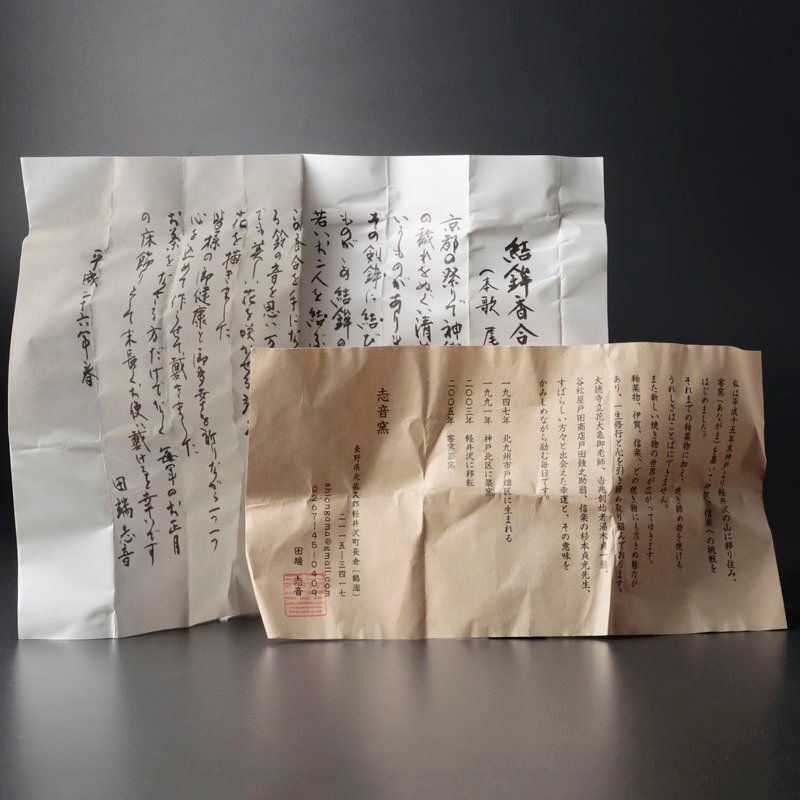 結鉾香合
(本歌 尾
京都の祭りで神
の穢れをぬぐい清
いうものがあります
その剣鉾に結び
ものがこの結鉾の
若いお二人を結ぶ
この香合を手にな
る鈴の音を思い万
でも美しい花を咲かせる
花を描きました
皆様の御健康と御多幸を祈りながら一つ一つ
心を込めて作らせて戴きました
お茶をなさる方だけでなく 毎年のお正月
の床飾りとして末長くお使い戴けると幸いです
平成二六年春
田端志音
私は平成十五年末神戸より軽井沢の山に移り住み、
窖窯(あながま)を築いて伊賀、信楽への挑戦を
はじめました。
それまでの釉薬物に加え、焼き締め物を焼ける
うれしさはことばにでません。
また新しい焼き物の世界が広がってゆきます。
釉薬物、伊賀、信楽、どの焼き物にも尽きぬ魅力が
あり、一生修行と心を引き締め取り組んでおります。
大徳寺立花大亀御老師、吉兆創始者湯木貞一翁、
谷松屋戸田商店戸田鍾之助翁、信楽の杉本貞光先生、
すばらしい方々と出会えた幸運と、その意味を
かみしめながら励む毎日です。
一九四七年 北九州市戸畑区に生まれる
一九九一年 神戸北区に築窯
二〇〇三年 軽井沢に移転
二〇〇五年 窖窯築窯
志音窯
長野県北佐久郡軽井沢町長倉(鶴溜)
二一一五ー三四一七
shiongama@gmail.com
0267-45-0409
田端 志音